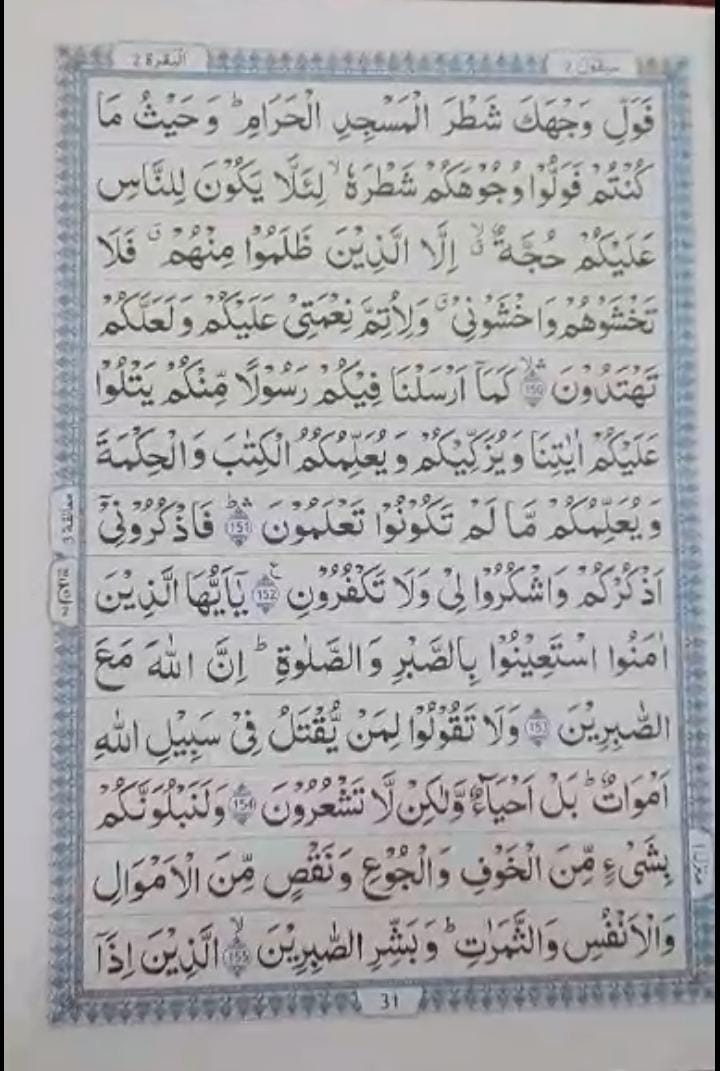 البقرة 2
سيقول 2
فَوَلِّ وَجْهَكَ شَطْرَ الْمَسْجِدِ الْحَرَامِ ؕ وَ حَيْثُ مَا
كُنْتُمْ فَوَلُّوْا وُجُوْهَكُمْ شَطْرَهٗ ۙ لِئَلَّا يَكُوْنَ لِلنَّاسِ
عَلَيْكُمْ حُجَّةٌ ۙۗ اِلَّا الَّذِيْنَ ظَلَمُوْا مِنْهُمْ ۗ فَلَا
تَخْشَوْهُمْ وَاخْشَوْنِيْ ۗ وَلِاُتِمَّ نِعْمَتِيْ عَلَيْكُمْ وَ لَعَلَّكُمْ
تَهْتَدُوْنَ 150 كَمَاۤ اَرْسَلْنَا فِيْكُمْ رَسُوْلًا مِّنْكُمْ يَتْلُوْا
عَلَيْكُمْ اٰيٰتِنَا وَ يُزَكِّيْكُمْ وَ يُعَلِّمُكُمُ الْكِتٰبَ وَ الْحِكْمَةَ
وَ يُعَلِّمُكُمْ مَّا لَمْ تَكُوْنُوْا تَعْلَمُوْنَ 151 فَاذْكُرُوْنِيْۤ
اَذْكُرْكُمْ وَاشْكُرُوْا لِيْ وَلَا تَكْفُرُوْنِ 152 يٰۤاَيُّهَا الَّذِيْنَ
اٰمَنُوا اسْتَعِيْنُوْا بِالصَّبْرِ وَالصَّلٰوةِ ؕ اِنَّ اللّٰهَ مَعَ
الصّٰبِرِيْنَ 153 وَلَا تَقُوْلُوْا لِمَنْ يُّقْتَلُ فِيْ سَبِيْلِ اللّٰهِ
اَمْوَاتٌ ؕ بَلْ اَحْيَآءٌ وَّلٰكِنْ لَّا تَشْعُرُوْنَ 154 وَلَنَبْلُوَنَّكُمْ
بِشَيْءٍ مِّنَ الْخَوْفِ وَالْجُوْعِ وَ نَقْصٍ مِّنَ الْاَمْوَالِ
وَالْاَنْفُسِ وَالثَّمَرٰتِ ؕ وَ بَشِّرِ الصّٰبِرِيْنَ 155 الَّذِيْنَ اِذَاۤ
معانقة 3
منزل ۱
31